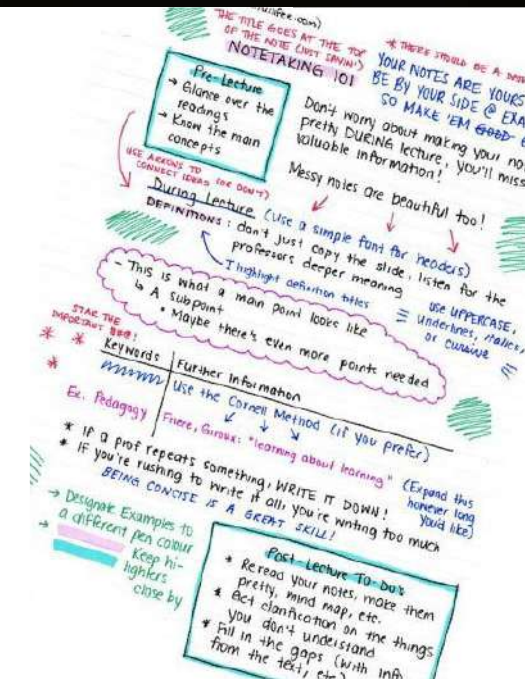 THE TITLE GOES AT THE TOP
OF THE NOTE (JUST SAYIN')
NOTETAKING 101
* THERE SHOULD BE A
YOUR NOTES ARE YOURS
BE BY YOUR SIDE @
SO MAKE 'EM GOOD
Pre-Lecture
→ Glance over the
readings
→ Know the main
concepts
Don't worry about making your
pretty DURING lecture, you'll miss
valuable information!
Messy notes are beautiful too!
USE ARROWS TO
CONNECT IDEAS (OR DON'T)
During Lecture (Use a simple font for headers)
DEFINITIONS: don't just copy the slide, listen for the
professors deeper meaning
I highlight definition titles
- This is what a main point looks like
↳ A subpoint
• Maybe there's even more points needed
USE UPPERCASE,
underlines, italics,
or cursive
STAR THE
IMPORTANT
Keywords
Further Information
Use the Cornell Method (if you prefer)
Ex. Pedagogy
Friere, Giroux: "learning about learning"
(Expand this
however long
you'd like)
* If a prof repeats something, WRITE IT DOWN!
* If you're rushing to write it all, you're writing too much
BEING CONCISE IS A GREAT SKILL!
→ Designate Examples to
a different pen colour
→ Keep hi-
lighters
close by
Post-Lecture To-Do's
* Reread your notes, make them
pretty, mind map, etc.
* Get clarification on the things
you don't understand
* Fill in the gaps (with info
from the text, etc)